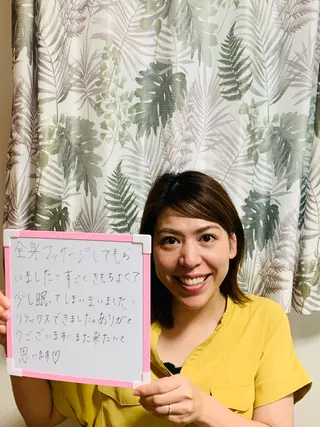 全身マッサージしてもら
いました!! すごくきもちよくて
少し眠ってしまいました!!
リラックスできました。ありがと
うございます!また来たいと
思います♡